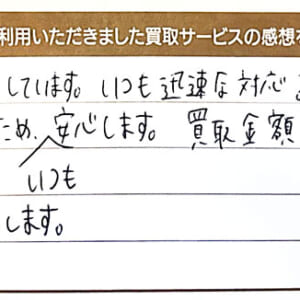 利用いただきました買取サービスの感想
しています。いつも迅速な対応
ため、安心します。買取金額
いつも
します。